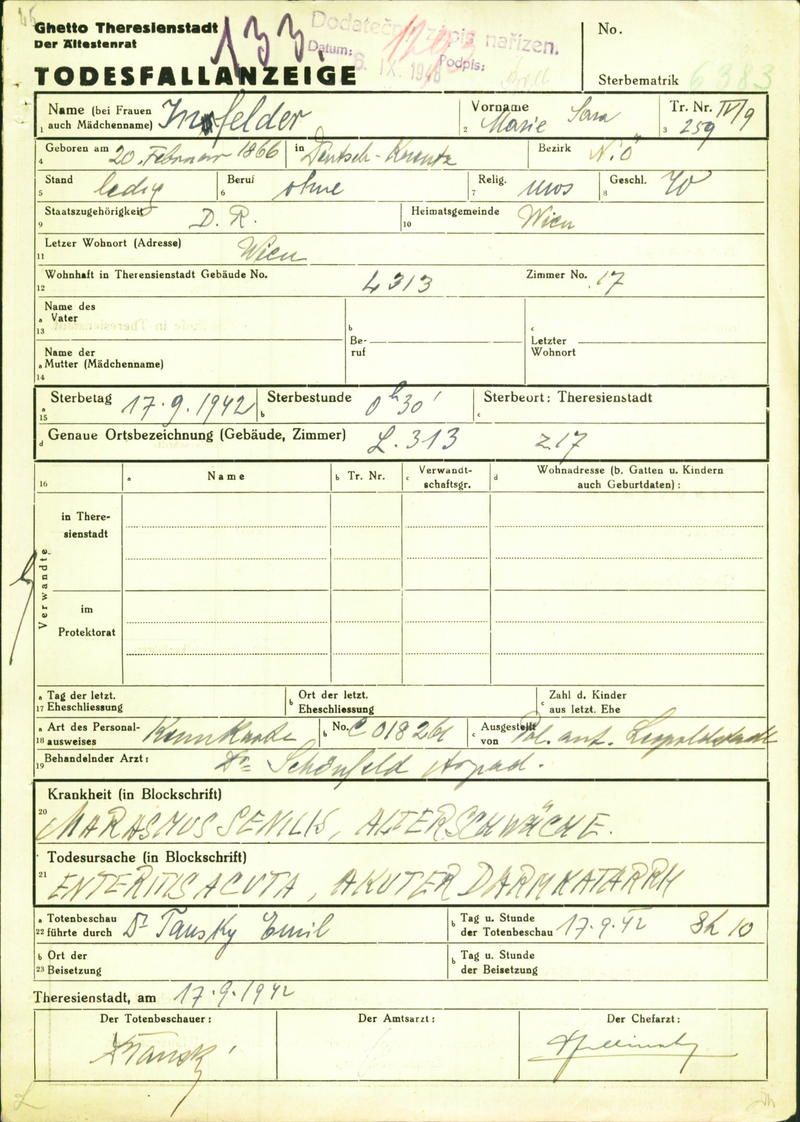 Ghetto Theresienstadt
Der Ältestenrat
TODESFALLANZEIGE
133.
Dodatečný zápis nařízen.
Datum: 6. IX. 1948 Podpis:
No.
Sterbematrik 6383
Name (bei Frauen
1 auch Mädchenname) felder
2 Vorname Marie Sara
3 Tr. Nr. IV/9
259
4 Geboren am 20. Februar 1866 in Deutsch- Bezirk N.Ö
5 Stand ledig 6 Beruf ohne 7 Relig. mos 8 Geschl. W
9 Staatszugehörigkeit D. R. 10 Heimatsgemeinde Wien
11 Letzer Wohnort (Adresse) Wien
12 Wohnhaft in Therensienstadt Gebäude No. L 313 Zimmer No. 17
Name des
a Vater
13
b Beruf
c Letzter
Wohnort
Name der
a Mutter (Mädchenname)
14
a 15 Sterbetag 17.9.1942 b Sterbestunde 0h 30' c Sterbeort: Theresienstadt
d Genaue Ortsbezeichnung (Gebäude, Zimmer) L. 313 Z 17
16 a Name b Tr. Nr. c Verwandt-
schaftsgr. d Wohnadresse (b. Gatten u. Kindern
auch Geburtdaten) :
Verwandte
in There-
sienstadt
im
Protektorat
a Tag der letzt.
17 Eheschliessung
b Ort der letzt.
Eheschliessung
c Zahl d. Kinder
aus letzt. Ehe
a Art des Personal-
18 ausweises Kennkarte b No. C 018261 c Ausgestellt
von Pol. amt. Leopoldstadt
19 Behandelnder Arzt: Dr Schönfeld Arpad.
Krankheit (in Blockschrift)
20 MARASMUS SENILIS, ALTERSCHWÄCHE.
Todesursache (in Blockschrift)
21 ENTERITIS ACUTA, AKUTER DARMKATARRH
a Totenbeschau
22 führte durch Dr Tansky Emil
b Tag u. Stunde
der Totenbeschau 17.9.42 8h 10
b Ort der
23 Beisetzung
b Tag u. Stunde
der Beisetzung
Theresienstadt, am 17.9.1942
Der Totenbeschauer: Der Amtsarzt: Der Chefarzt: